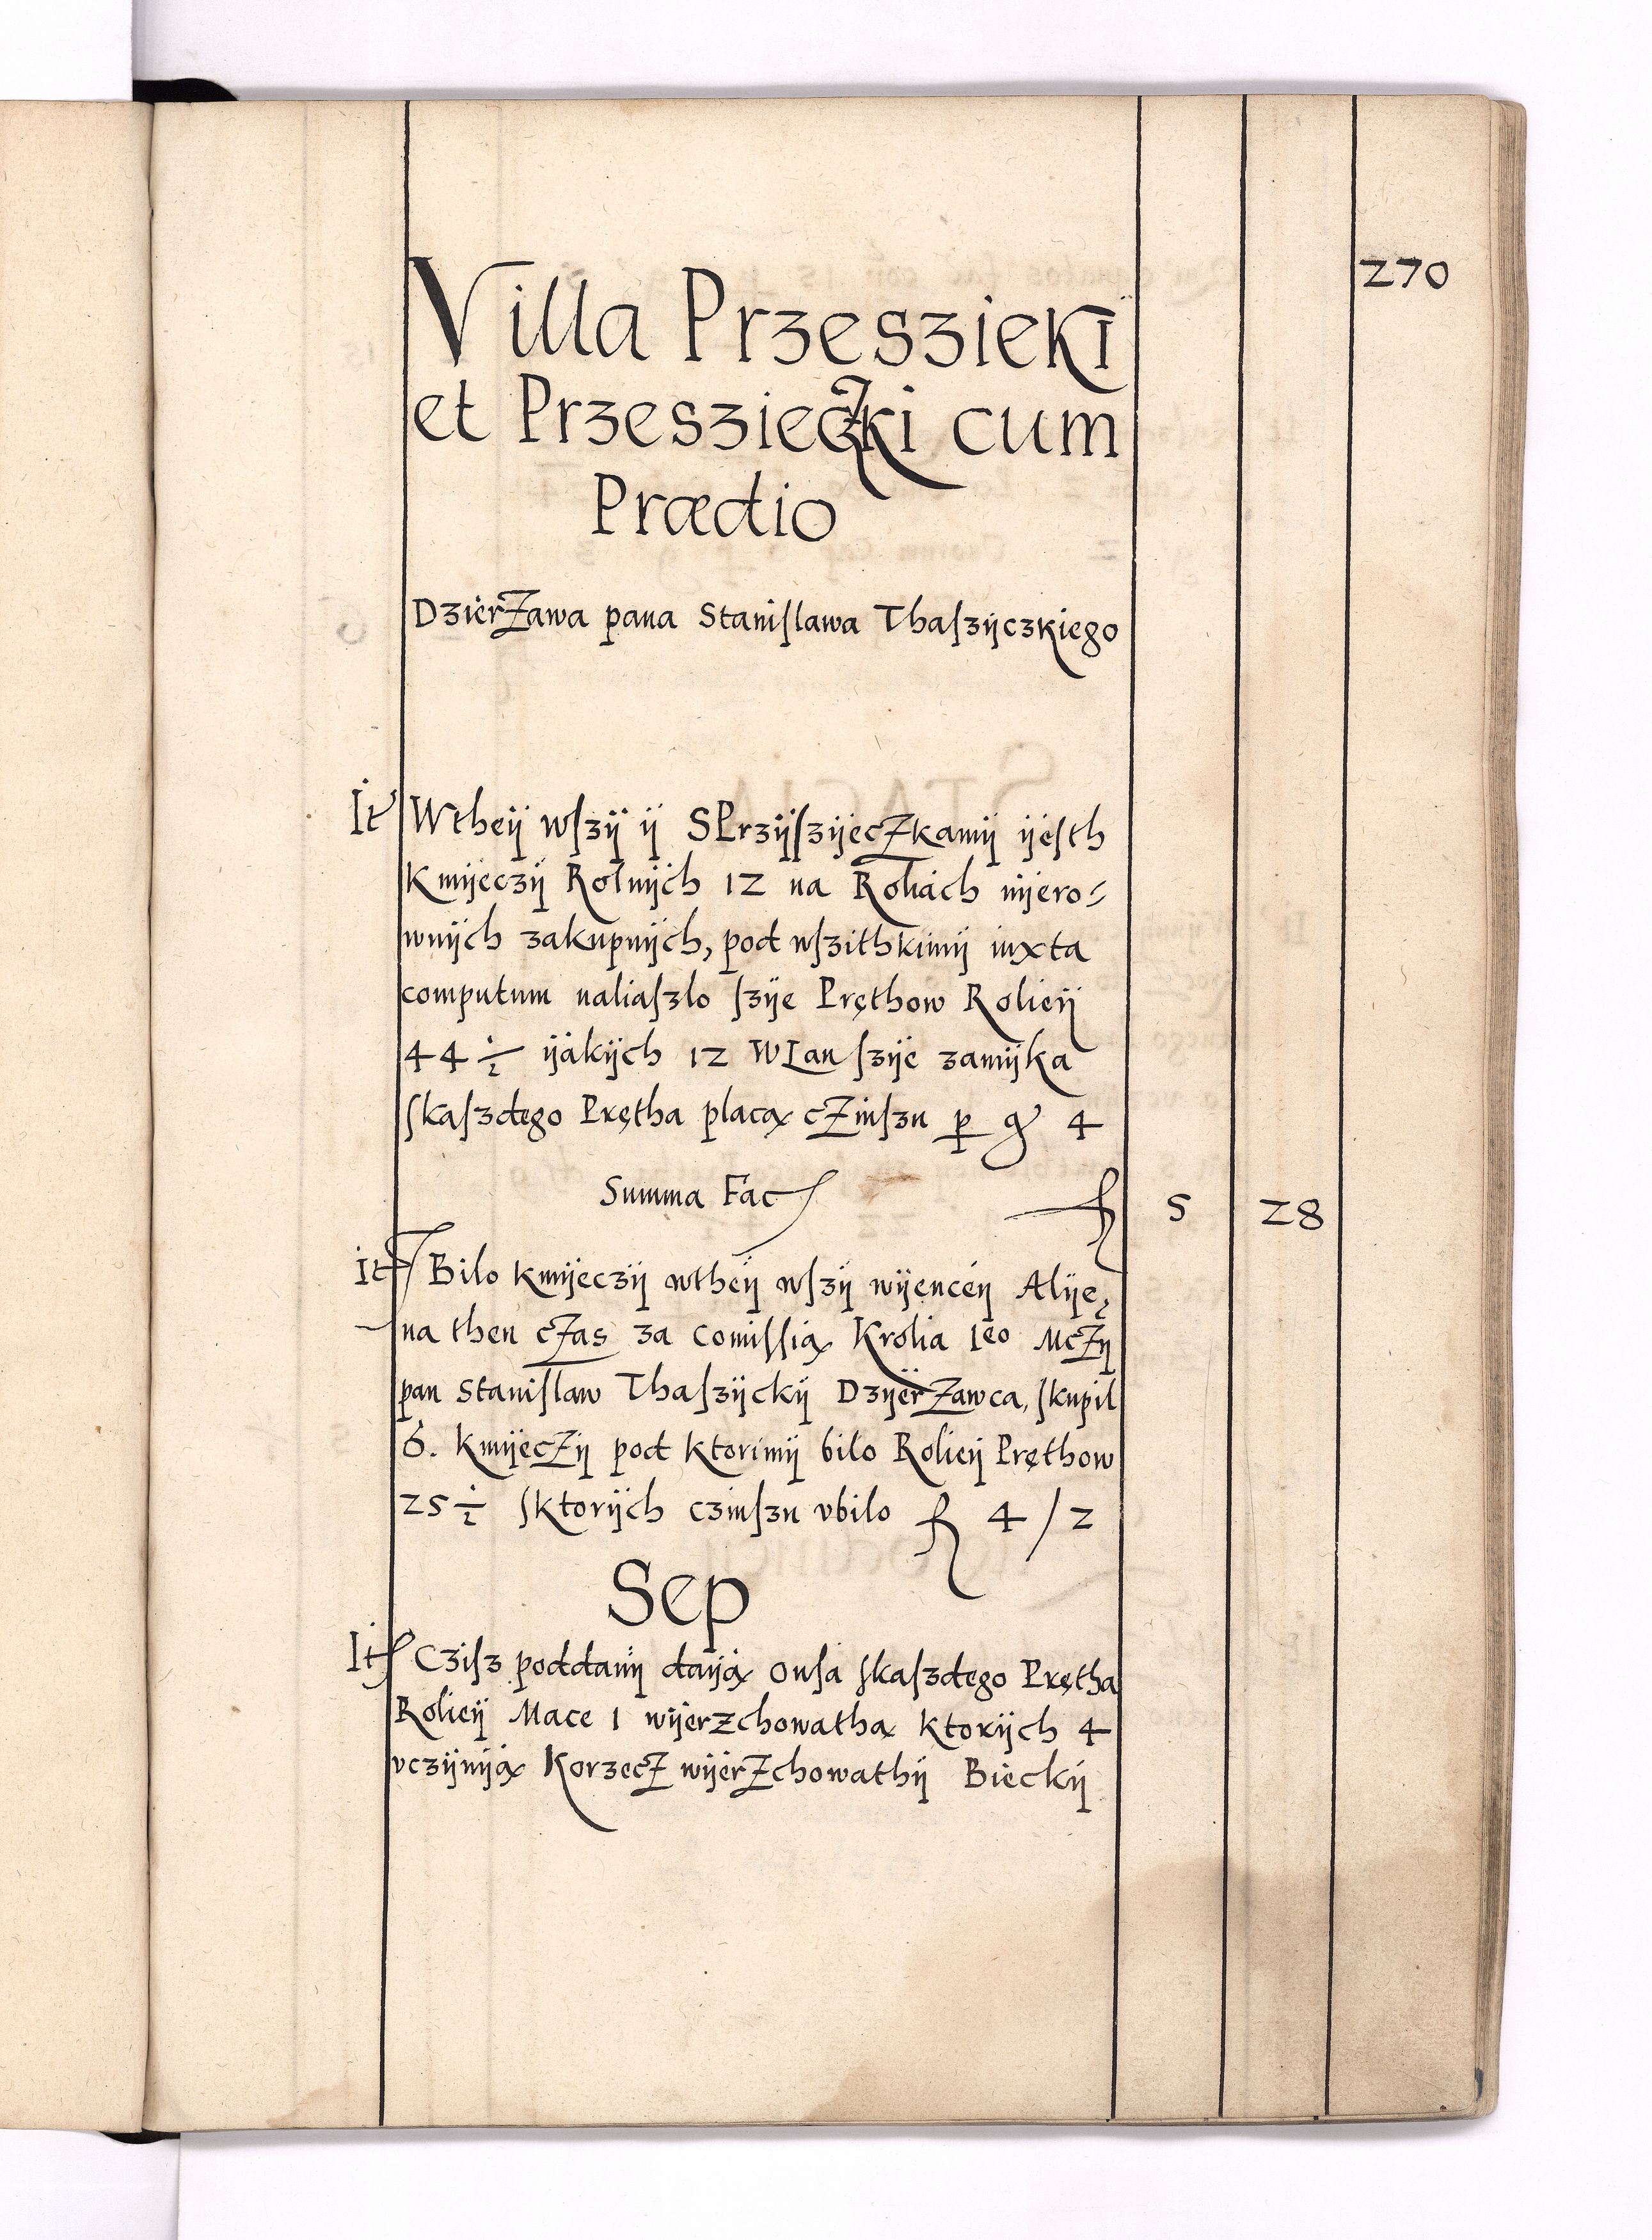 270
Villa Przeszieki
et Przeszieczki cum
Prædio
Dzierżawa pana Stanisława Thaszÿczkiego
It Wtheÿ wszÿ ÿ SPrzÿszÿeczkamÿ ÿesth
Kmÿeczÿ Rolnÿch 12 na Roliach nÿero-
wnÿch zakupnÿch, pod wszithkimÿ iuxta
computum naliaszlo szÿe Pręthow Rolieÿ
44 ½ ÿakÿch 12 WLan szÿe zamÿka
skaszdego Prętha płacą czinszu p gͬ 4
Summa Fac f 5 28
It Bilo kmÿeczÿ wtheÿ wszÿ wÿenceÿ Alÿe
na then czas za Comissią Krolia Ieo Mczÿ
pan Stanislaw Thaszÿckÿ Dzÿerżawca, skupil
6. kmÿeczÿ pod ktorimÿ bilo Rolieÿ Pręthow
25 ½ sktorÿch czinszu ubilo f 4 / 2
Sep
It Czisz poddanÿ daÿą owsa skaszdego Prętha
Rolieÿ Mace 1 wÿerzchowathą ktorÿch 4
uczÿnÿą Korzecz wÿerzchowathÿ Bieckÿ